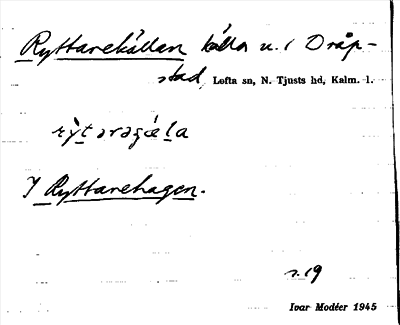 Ryttarekällan källa u. i Dråp-
stad, Lofta sn, N. Tjusts hd, Kalm. l.
rỳtaraçæla
I Ryttarehagen.
s. 19
Ivar Modéer 1945